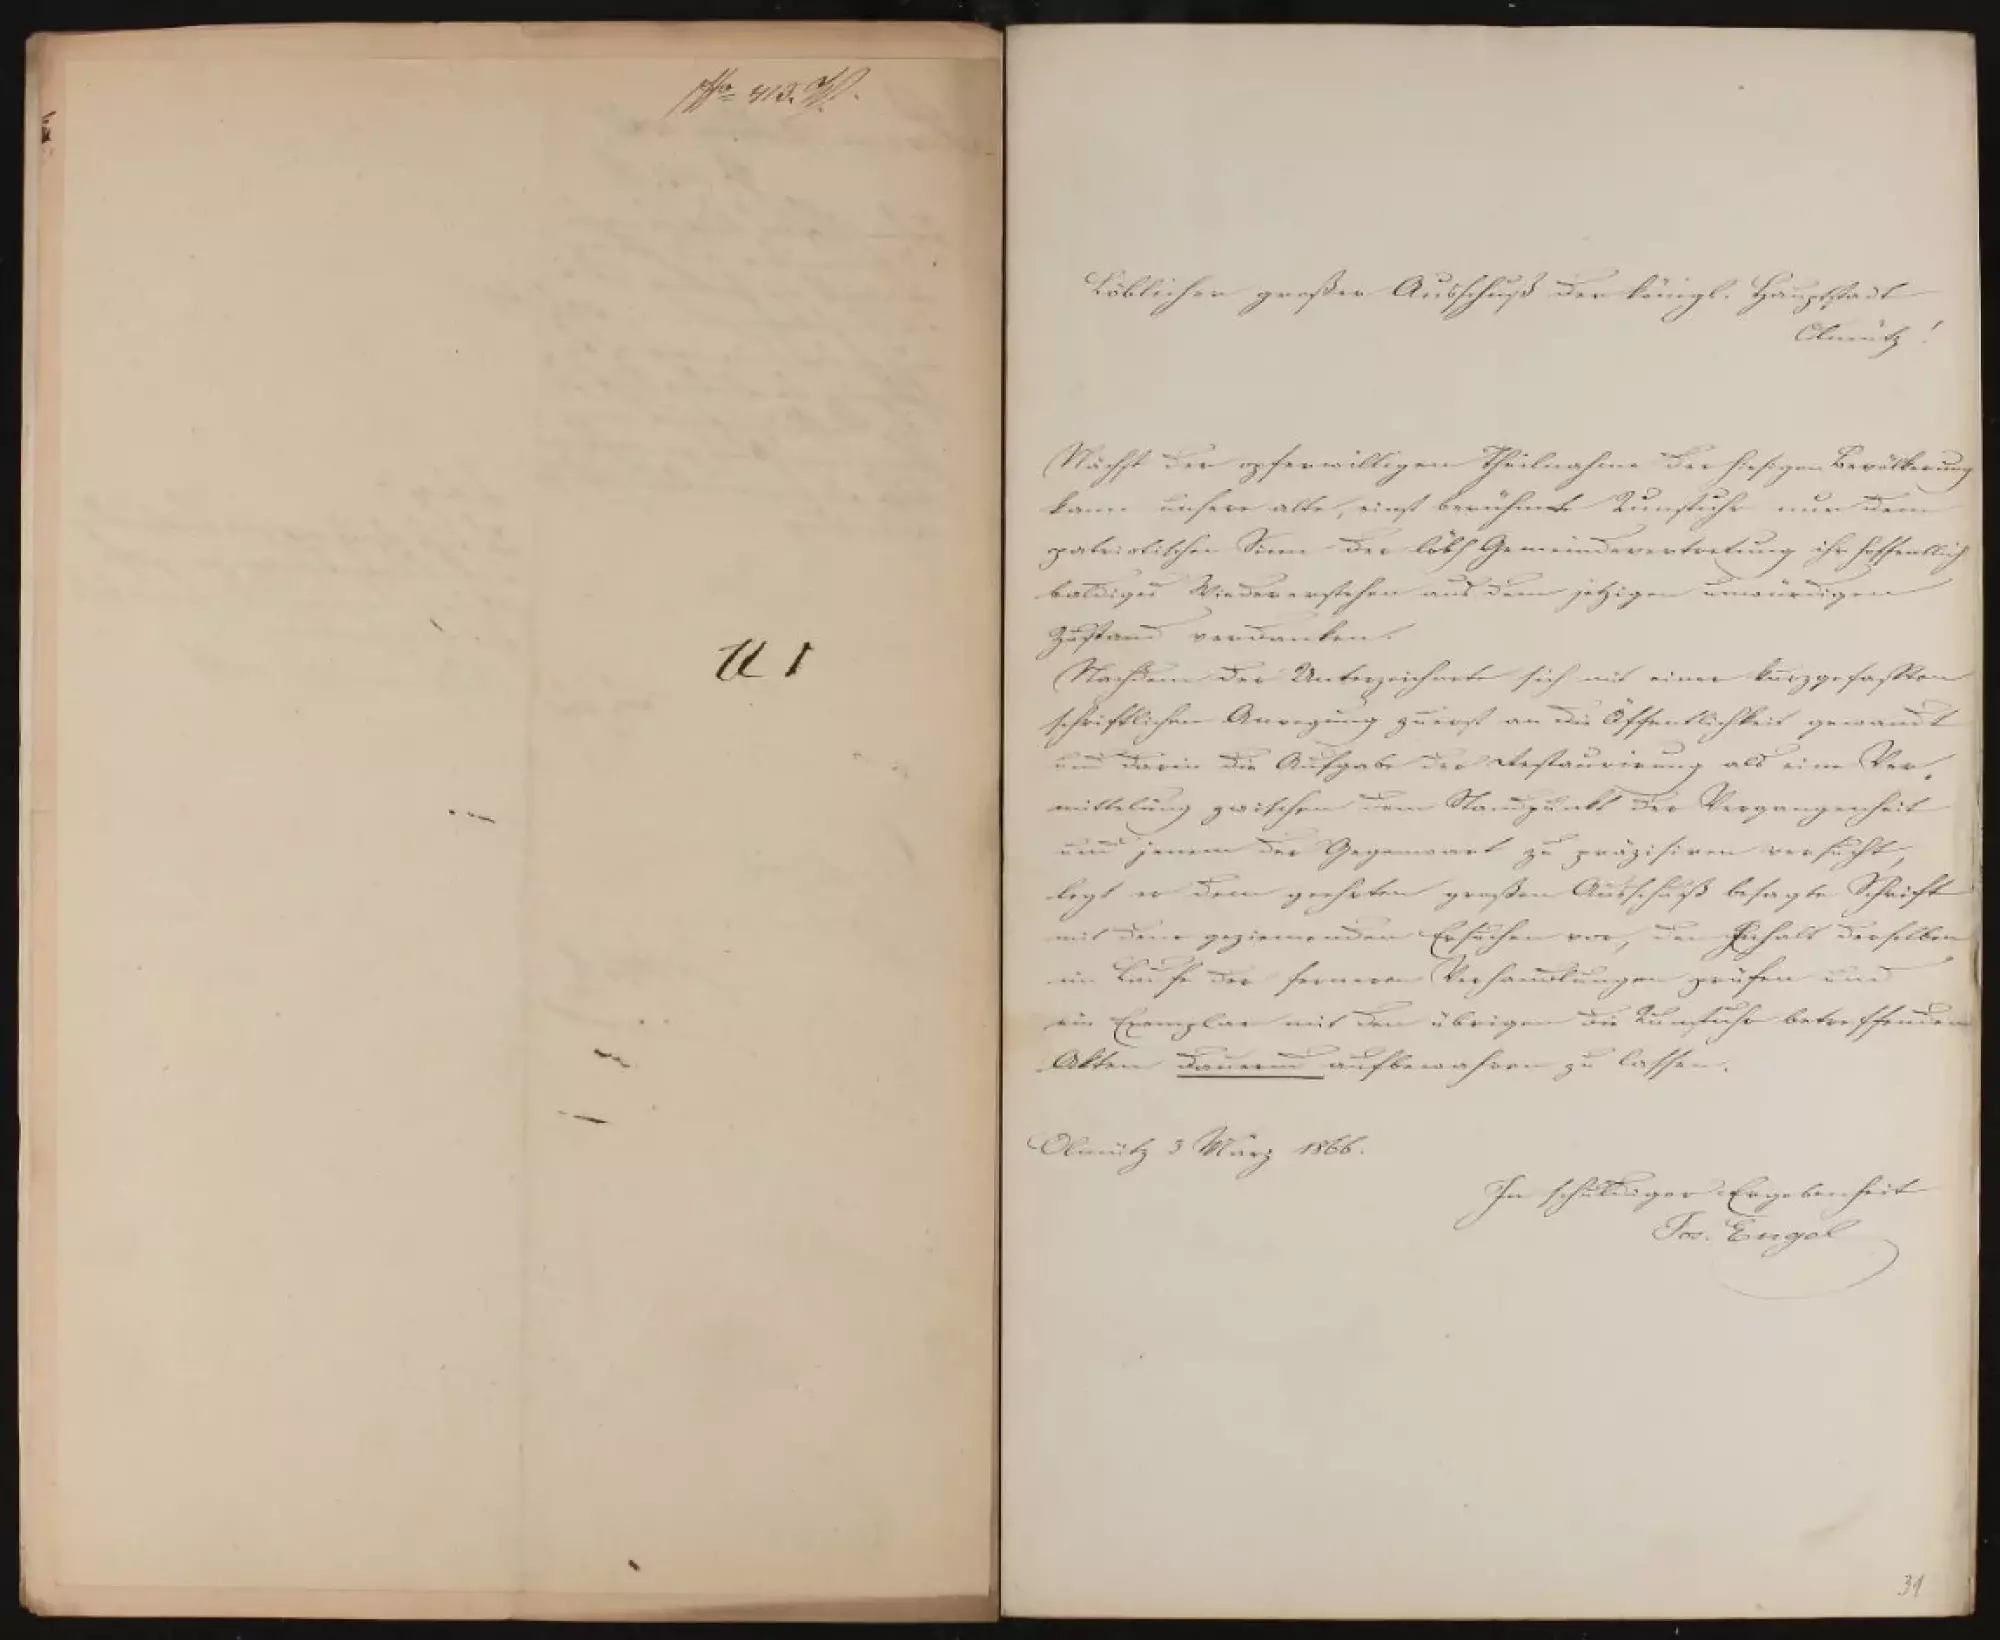 Löblicher großer Ausschuß der königl. Hauptstadt
Olmütz!
Nächst der opferwilligen Theilnahme der hiesigen Bevölkerung
kann unsere alte, einst berühmte Kunstuhr nur dem
patriotischen Sinn der löbl Gemeindevertretung ihr hoffentlich
baldiges Wiedererstehen aus dem jetzigen unwürdigen
Zustand verdanken.
Nachdem der Unterzeichnete sich mit einer kurzgefaßten
schriftlichen Anregung zuerst an die Öffentlichkeit gewandt
und darin die Aufgabe der Restaurirung als eine Ver-
mittelung zwischen dem Standpunkt der Vergangenheit
und jenem der Gegenwart zu präzisiren versucht,
legt er dem geehrten großen Ausschuß besagte Schrift
mit dem geziemenden Ersuchen vor, den Inhalt derselben
im Laufe der ferneren Verhandlungen prüfen und
ein Exemplar mit den übrigen die Kunstuhr betreffenden
Akten dauernd aufbewahren zu lassen.
Olmütz 3 März 1866.
In schuldiger Ergebenheit
Jos. Engel
31